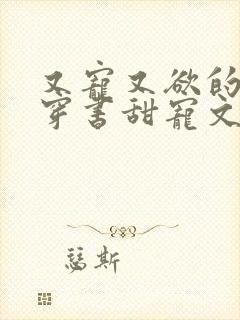 又寵又欲的
穿书甜寵文
瑟斯